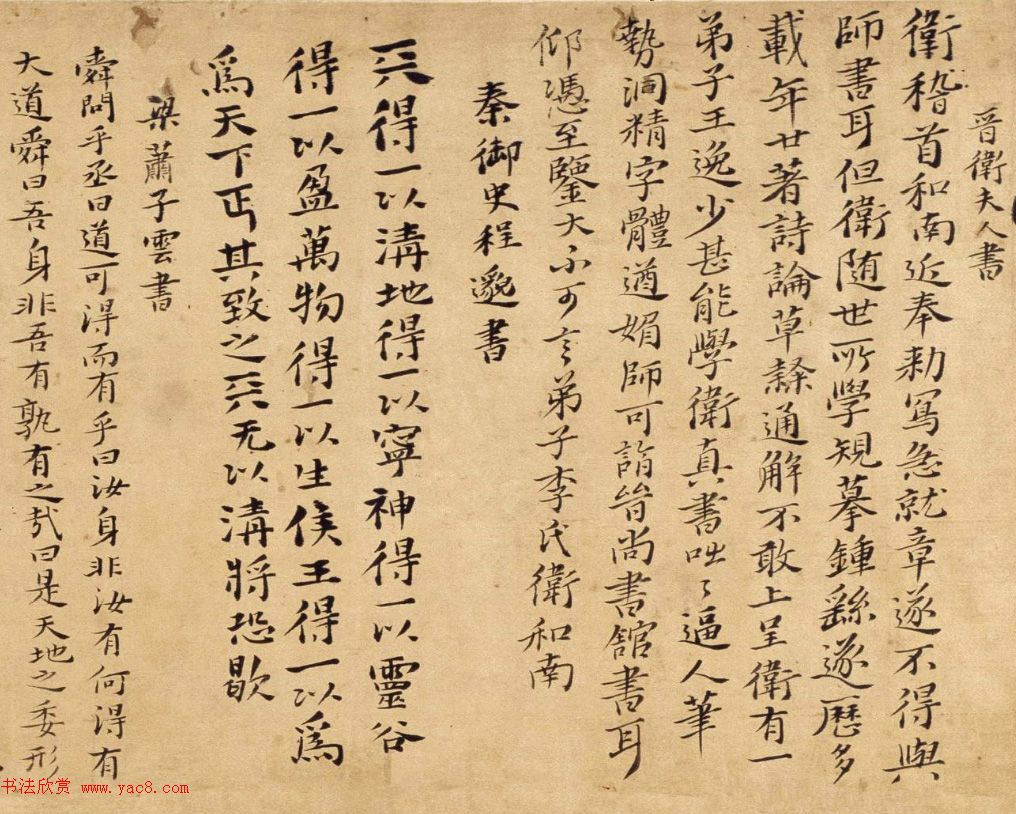 晉衛夫人書
衛稽首和南近奉勑寫急就章遂不得與
師書耳但衛随世所學規摹鍾繇遂歷多
載年廿著詩論草隸通解不敢上呈衛有一
弟子王逸少甚能學衛真書咄〻逼人筆
勢洞精字體遒媚師可詣晉尚書館書耳
仰憑至鑒大不可言弟子李氏衛和南
秦御史程邈書
天得一以清地得一以寧神得一以靈谷
得一以盈萬物得一以生侯王得一以為
為天下正其致之天无以清將恐歇
梁蕭子雲書
舜問乎丞曰道可得而有乎曰汝身非汝有何得有
大道舜曰吾身非吾有孰有之哉曰是天地之委形
书法欣赏 www.yac8.com